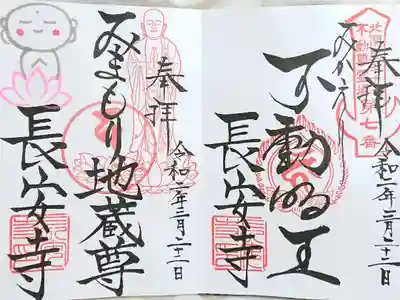 奉拝
令和二年三月二十二日
第七番
みかえり
不動明王
長安寺
奉拝
令和二年三月二十二日
みまもり地蔵尊
長安寺